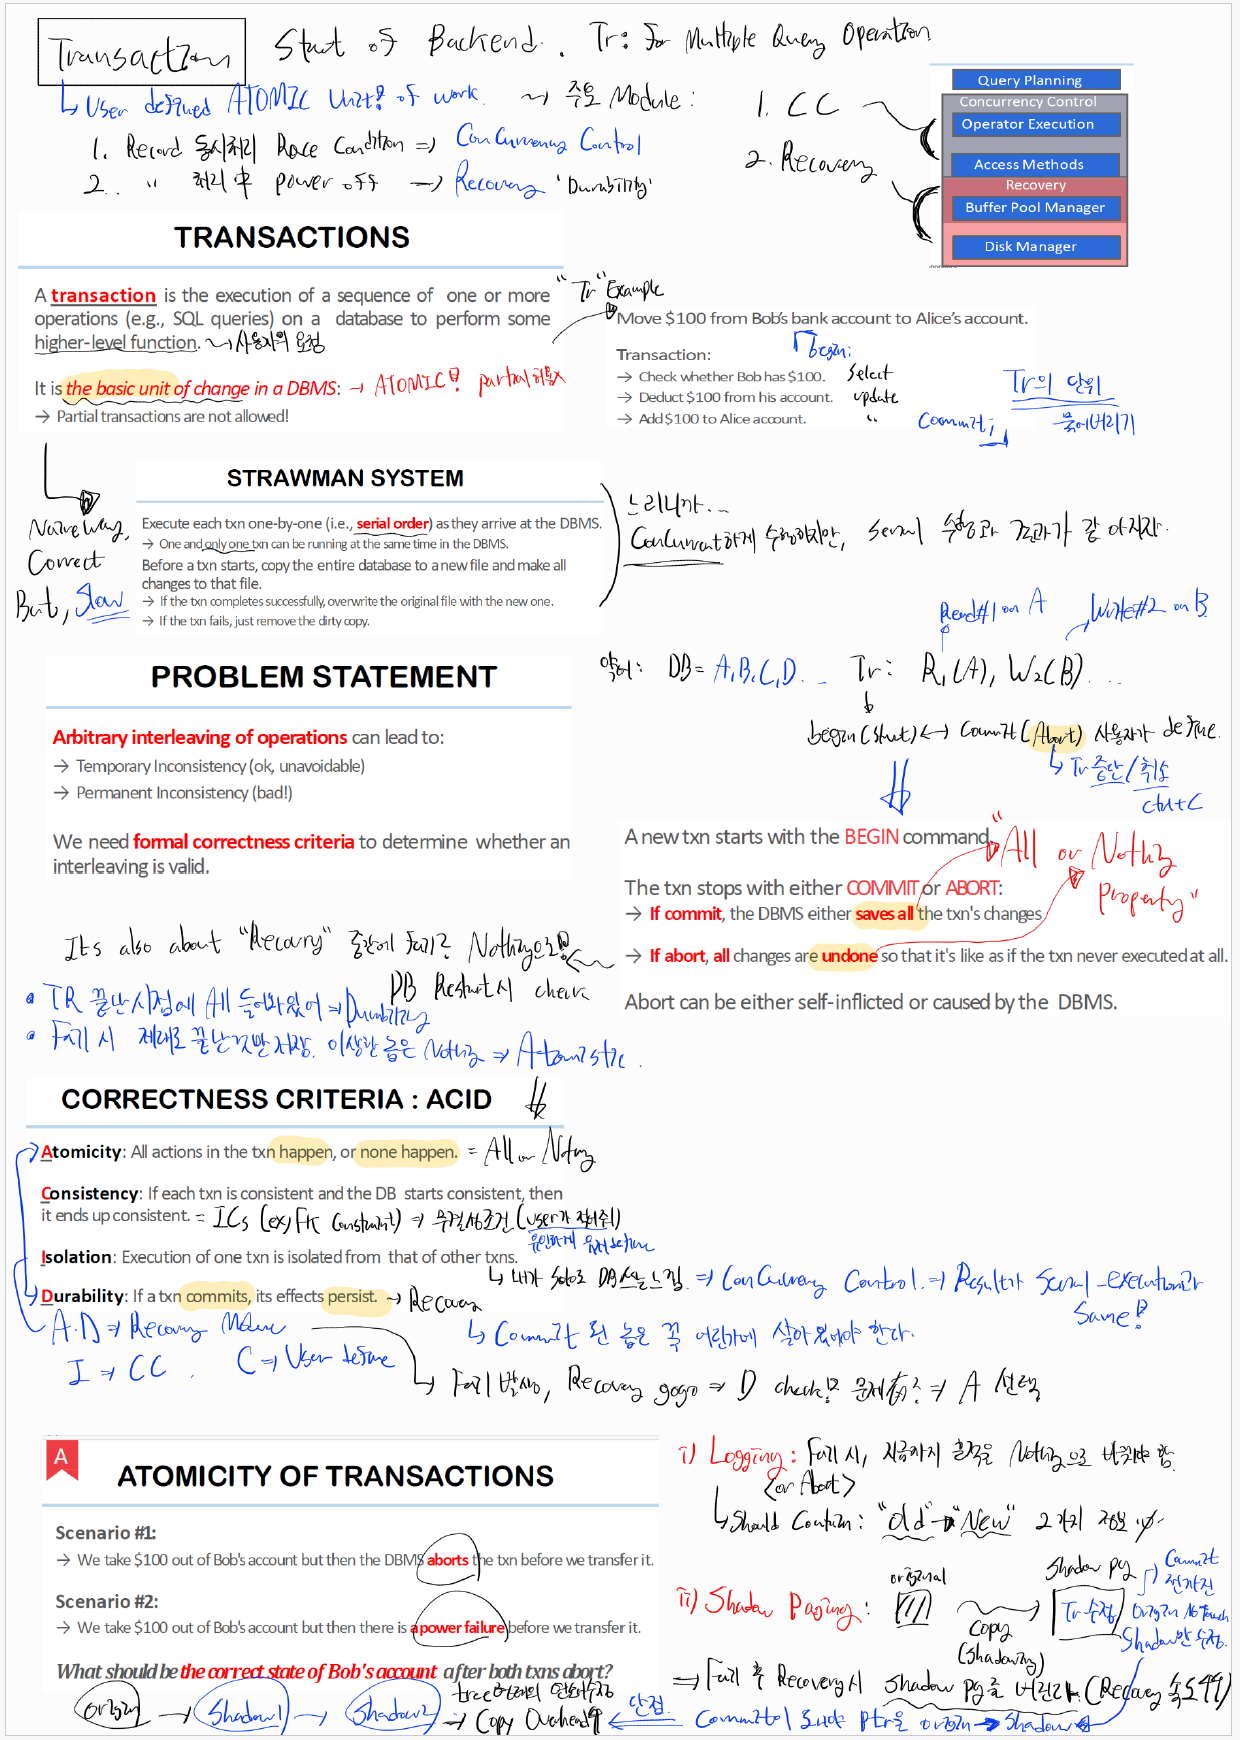 Transaction Start of Backend. Tr: for Multiple Query Operation
↳ User defined ATOMIC Unit! of work. ~> 주요 Module:
1. CC
2. Recovery
1. Record 동시처리 Race Condition => Concurrency Control
2. " 처리 中 power off → Recovery 'Durability'
Query Planning
Concurrency Control
Operator Execution
Access Methods
Recovery
Buffer Pool Manager
Disk Manager
TRANSACTIONS
A transaction is the execution of a sequence of one or more
operations (e.g., SQL queries) on a database to perform some
higher-level function. ~> 사용자의 요청
It is the basic unit of change in a DBMS: → ATOMIC!
→ Partial transactions are not allowed!
"Tr" Example
Move $100 from Bob's bank account to Alice's account.
begin;
Transaction:
→ Check whether Bob has $100. Select
→ Deduct $100 from his account. update
→ Add $100 to Alice account. "
Commit;
Tr의 단위
묶어버리기
Naive Way,
Correct
But, Slow
STRAWMAN SYSTEM
Execute each txn one-by-one (i.e., serial order) as they arrive at the DBMS.
→ One and only one txn can be running at the same time in the DBMS.
Before a txn starts, copy the entire database to a new file and make all
changes to that file.
→ If the txn completes successfully, overwrite the original file with the new one.
→ If the txn fails, just remove the dirty copy.
느리니까...
Concurrent하게 수행하지만, Serial 수행과 결과가 같아지자.
Read#1 on A
Write#2 on B
약어: DB = A, B, C, D ... Tr: R₁(A), W₂(B) ...
begin(start) <-> Commit (Abort) 사용자가 define.
↳ Tr 중단/취소
ctrl+C
PROBLEM STATEMENT
Arbitrary interleaving of operations can lead to:
→ Temporary Inconsistency (ok, unavoidable)
→ Permanent Inconsistency (bad!)
We need formal correctness criteria to determine whether an
interleaving is valid.
A new txn starts with the BEGIN command.
The txn stops with either COMMIT or ABORT:
→ If commit, the DBMS either saves all the txn's changes
→ If abort, all changes are undone so that it's like as if the txn never executed at all.
Abort can be either self-inflicted or caused by the DBMS.
"All or Nothing
Property"
It's also about "Recovery" 중간에 Fail? Nothing으로!
DB Restart시 check
• TR 끝난 시점에 All 들어와있어 => Durability
• Fail 시 제대로 끝난것만 저장. 이상한 놈은 Nothing => Atomistic.
CORRECTNESS CRITERIA : ACID
Atomicity: All actions in the txn happen, or none happen. = All or Nothing
Consistency: If each txn is consistent and the DB starts consistent, then
it ends up consistent. = ICs (ex, FK Constraint) => 무결성조건 (User가 적어줘!)
유일하게 유저 define
Isolation: Execution of one txn is isolated from that of other txns.
↳ 내가 Solo로 DB쓰는느낌 => Concurrency Control. => Result가 Serial-execution과
Same!
Durability: If a txn commits, its effects persist. → Recovery
↳ Commit 된 놈은 꼭 어딘가에 살아있어야 한다.
A.D => Recovery
I => CC. C => User define
↳ Fail 발생, Recovery gogo => D check! => A
A
ATOMICITY OF TRANSACTIONS
Scenario #1:
→ We take $100 out of Bob's account but then the DBMS aborts the txn before we transfer it.
Scenario #2:
→ We take $100 out of Bob's account but then there is a power failure before we transfer it.
What should be the correct state of Bob's account after both txns abort?
i) Logging: Fail 시, 지금까지 흔적을 Nothing으로 바꿔야 함.
<or Abort>
↳ Should Contain: "old" → "New" 2가지 정보
ii) Shadow Paging:
original
Copy
(Shadowing)
Shadow pg
Tr 수정
Commit
전까진
Origin No Touch
Shadow만 수정.
=> Fail 후 Recovery시 Shadow pg를 버린다. (Recovery 속도 ↑↑)
origin → Shadow1 → Shadow2 → Copy Overhead↑
단점
Ptr을 origin → Shadow